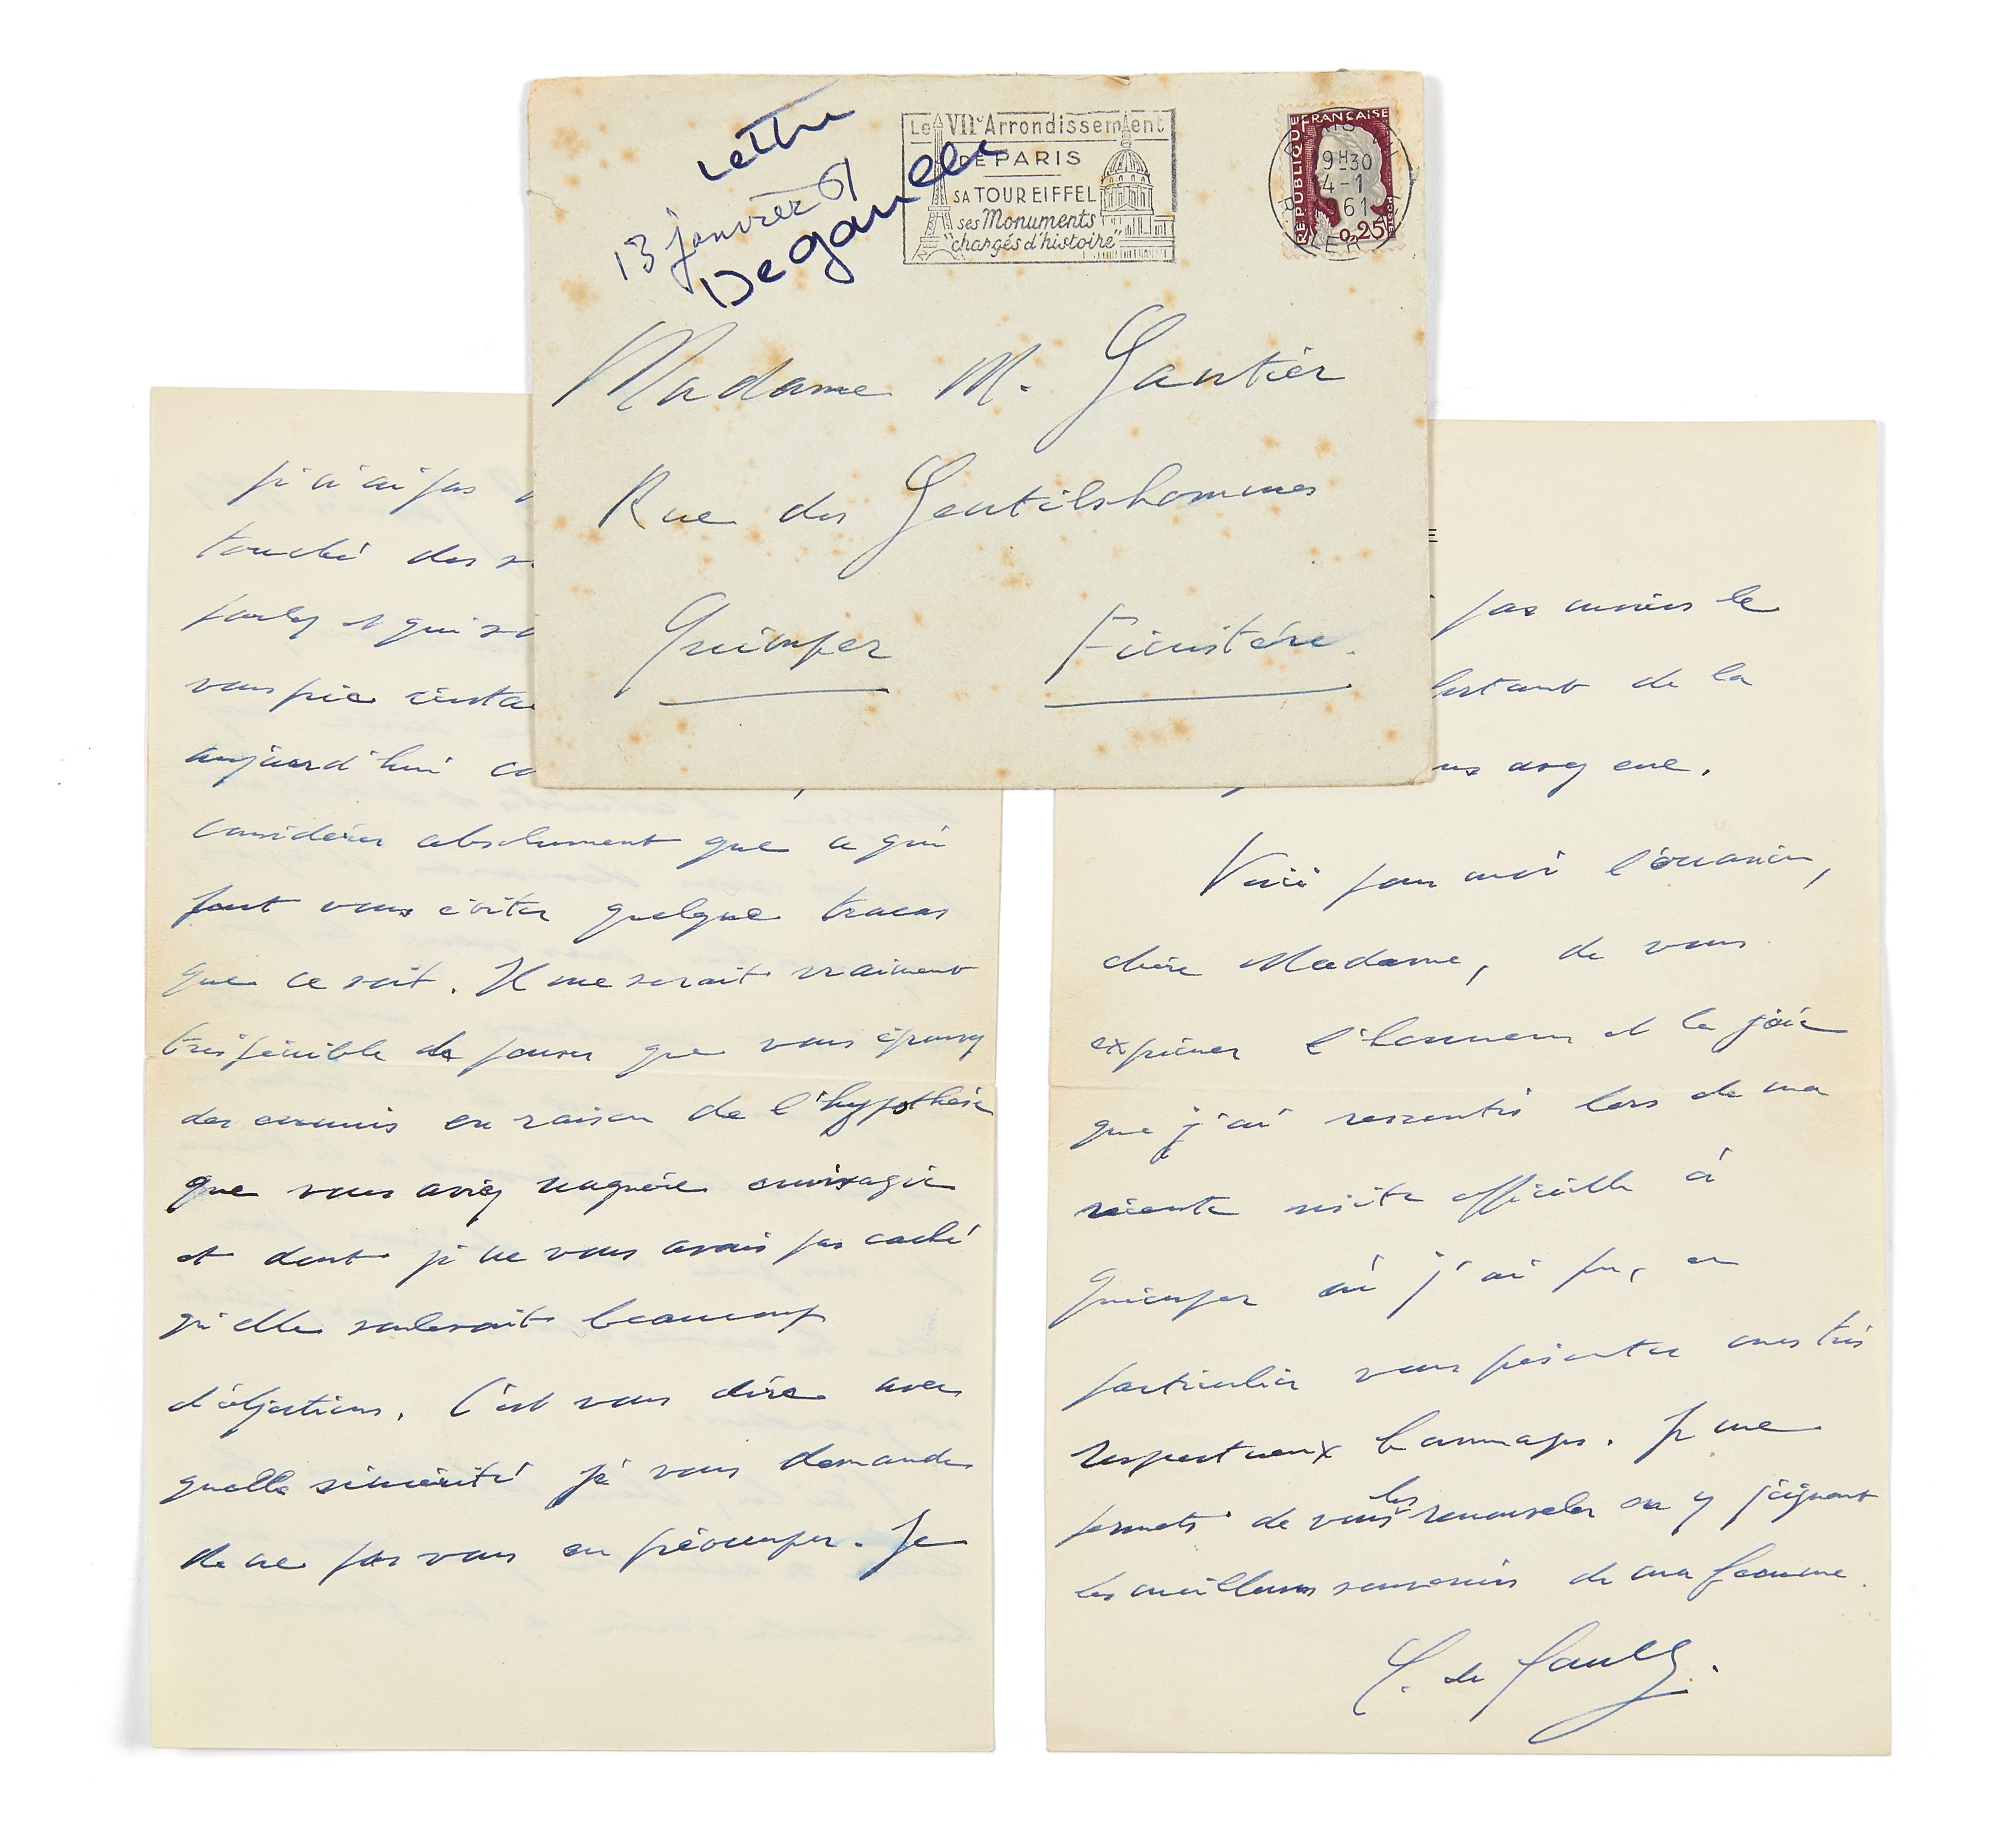 Lettre
13 janvier 61
De gaulle
Le VIIe Arrondissement
DE PARIS
SA TOUR EIFFEL
ses Monuments
"chargés d'histoire"
REPUBLIQUE FRANÇAISE
POSTES
0,25
PARIS
9H30
4-1
1961
Madame M. Gautier
Rue des Gentilshommes
Quimper Finistère.
je n'ai pas
touché des
parlez et qui
vous prie
aujourd'hui
considérer absolument que ce qui
faut vous éviter quelque tracas
que ce soit. Il me serait vraiment
très pénible de penser que vous éprouvez
des ennuis en raison de l'hypothèse
que vous aviez naguère envisagée
et dont je ne vous avais pas caché
qu'elle soulevait beaucoup
d'objections. C'est vous dire avec
quelle sincérité je vous demande
de ne pas vous en préoccuper. Je
E
pas moins le
de la
avez eue.
Voici pour moi l'occasion,
chère Madame, de vous
exprimer l'honneur et la joie
que j'ai ressentis lors de ma
récente visite officielle à
Quimper où j'ai pu, en
particulier vous présenter mes très
respectueux hommages. Je me
permets de vous les renouveler en y joignant
les meilleurs souvenirs de ma femme.
C. de Gaulle.